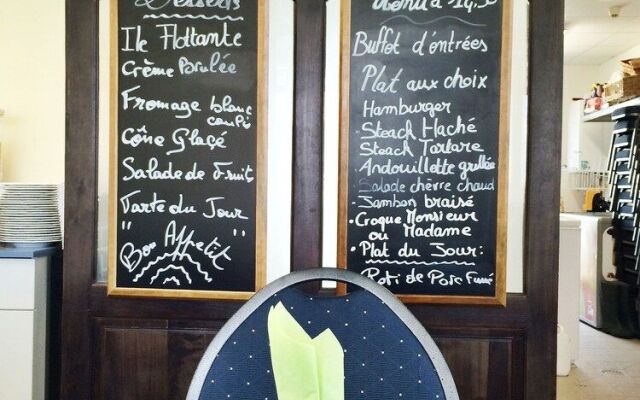 Desserts
Ile Flottante
Crème Brulée
Fromage blanc
coulis
Cône Glaçé
Salade de Fruit
Tarte du Jour
" Bon Appetit "
Menu à 14,50
Buffet d'entrées
Plat aux choix
Hamburger
Steack Haché
Steack Tartare
Andouillette grillée
Salade chèvre chaud
Jambon braisé
Croque Monsieur
ou Madame
Plat du Jour:
Roti de Porc Fumé